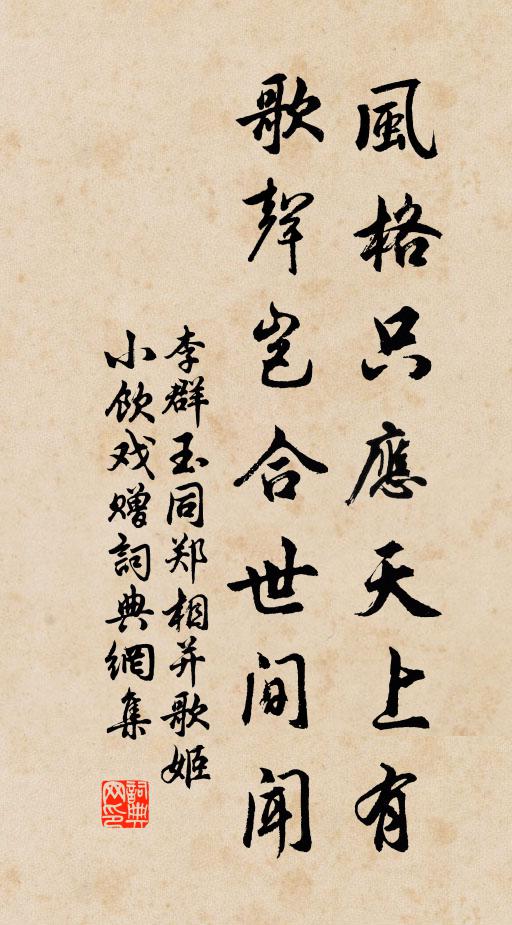 風格只應天上有
歌聲豈合世间闻
李群玉同郑相并歌姬
小饮戏赠詞典網集
詞典
网印